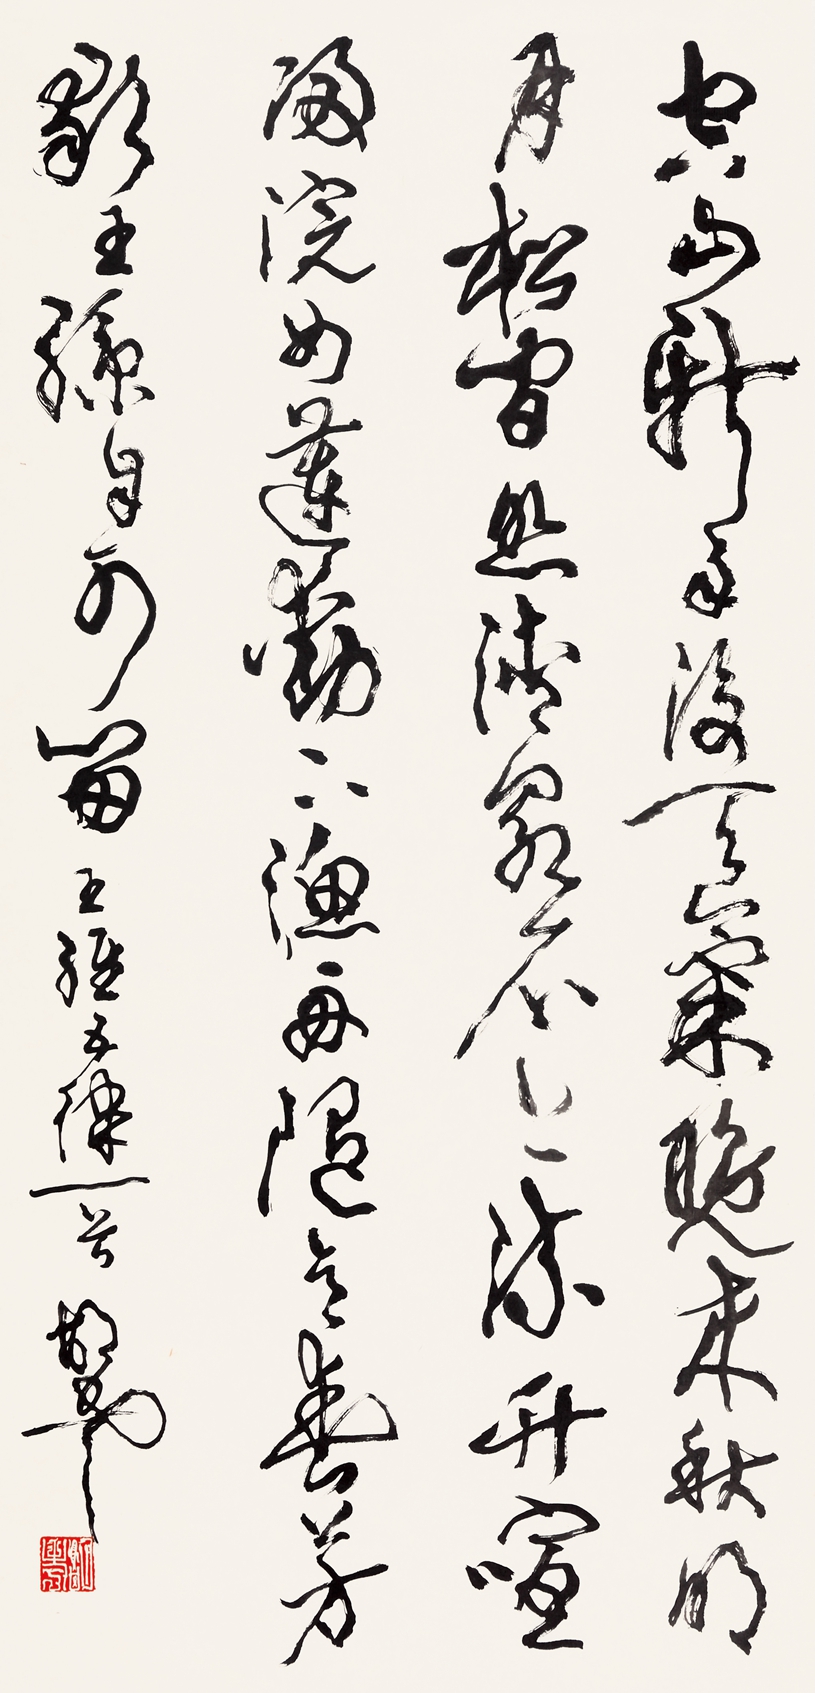 空山新雨後天氣晚來秋明
月松間照清泉石上流竹喧
歸浣女蓮動下漁舟隨意春芳
歇王孫自可留 王維五律一首